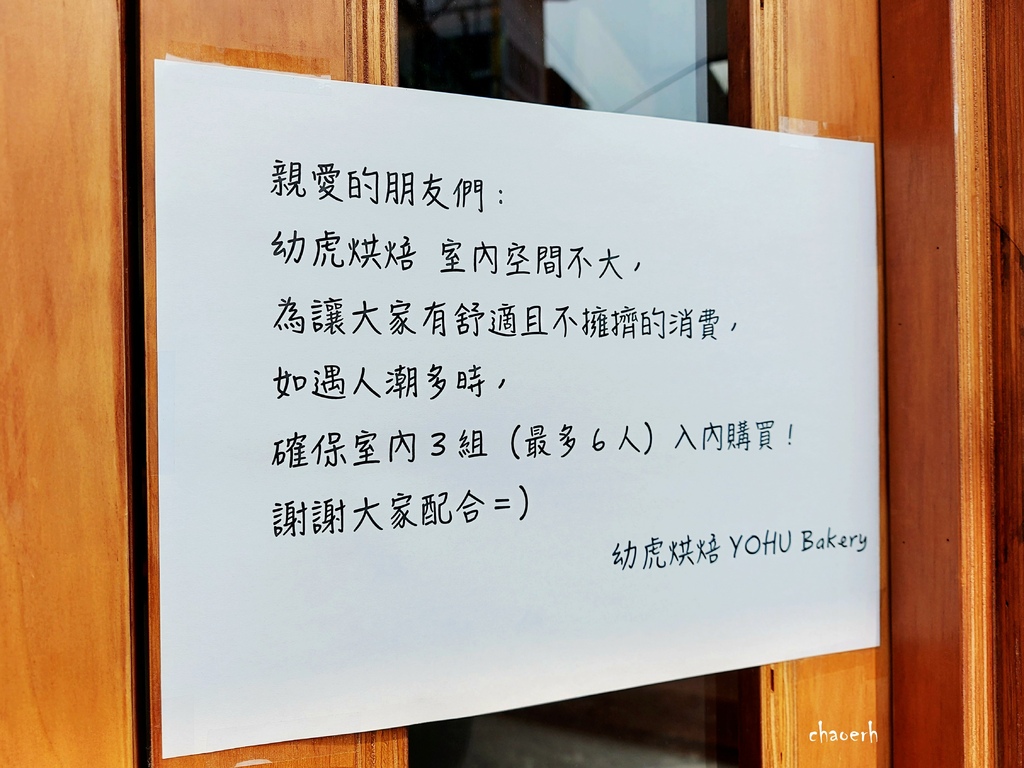 親愛的朋友們：
幼虎烘焙 室內空間不大，
為讓大家有舒適且不擁擠的消費，
如遇人潮多時，
確保室內3組（最多6人）入內購買！
謝謝大家配合=)
幼虎烘焙 YOHU Bakery
chaoerh